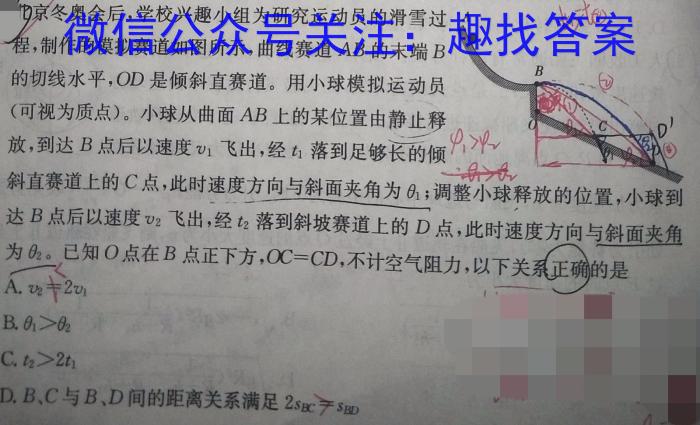 京冬奥会后,学校兴趣小组为研究运动员的滑雪过
微信公众号关注：趣找答案
程,制作的模拟赛道如图所示,曲线赛道 AB 的末端 B
的切线水平,OD 是倾斜直赛道。用小球模拟运动员
(可视为质点)。小球从曲面 AB 上的某位置由静止释
放,到达 B 点后以速度 v₁ 飞出,经 t₁ 落到足够长的倾
斜直赛道上的 C 点,此时速度方向与斜面夹角为 θ₁;调整小球释放的位置,小球到
达 B 点后以速度 v₂ 飞出,经 t₂ 落到斜坡赛道上的 D 点,此时速度方向与斜面夹角
为 θ₂。已知 O 点在 B 点正下方,OC=CD,不计空气阻力,以下关系正确的是
A. v₂=2v₁
B. θ₁>θ₂
C. t₂>2t₁
D. B、C 与 B、D 间的距离关系满足 2sBC=sBD
B
O
C
D'
φ₁>φ₂